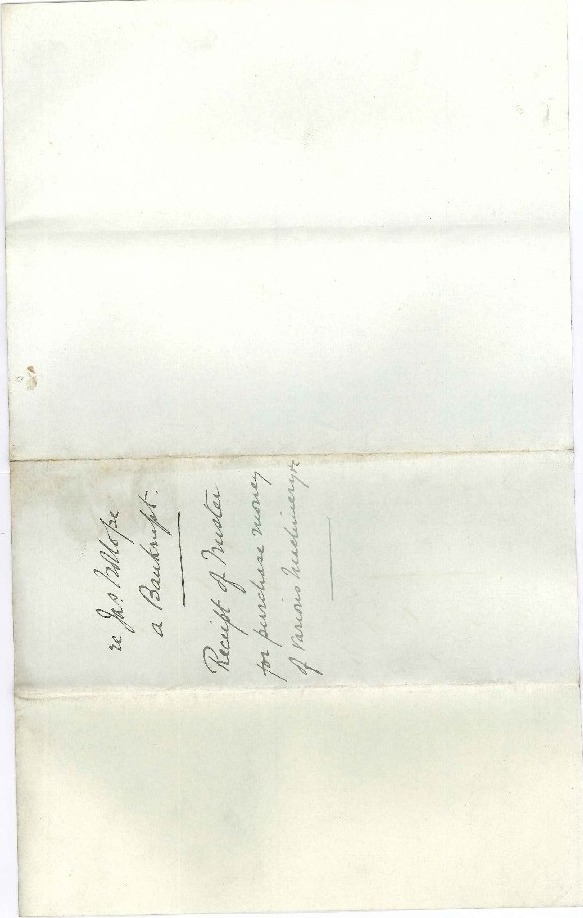 re Jas.
a Bankrupt.
Receipt of Trustee
for purchase money
of various Machinery &c